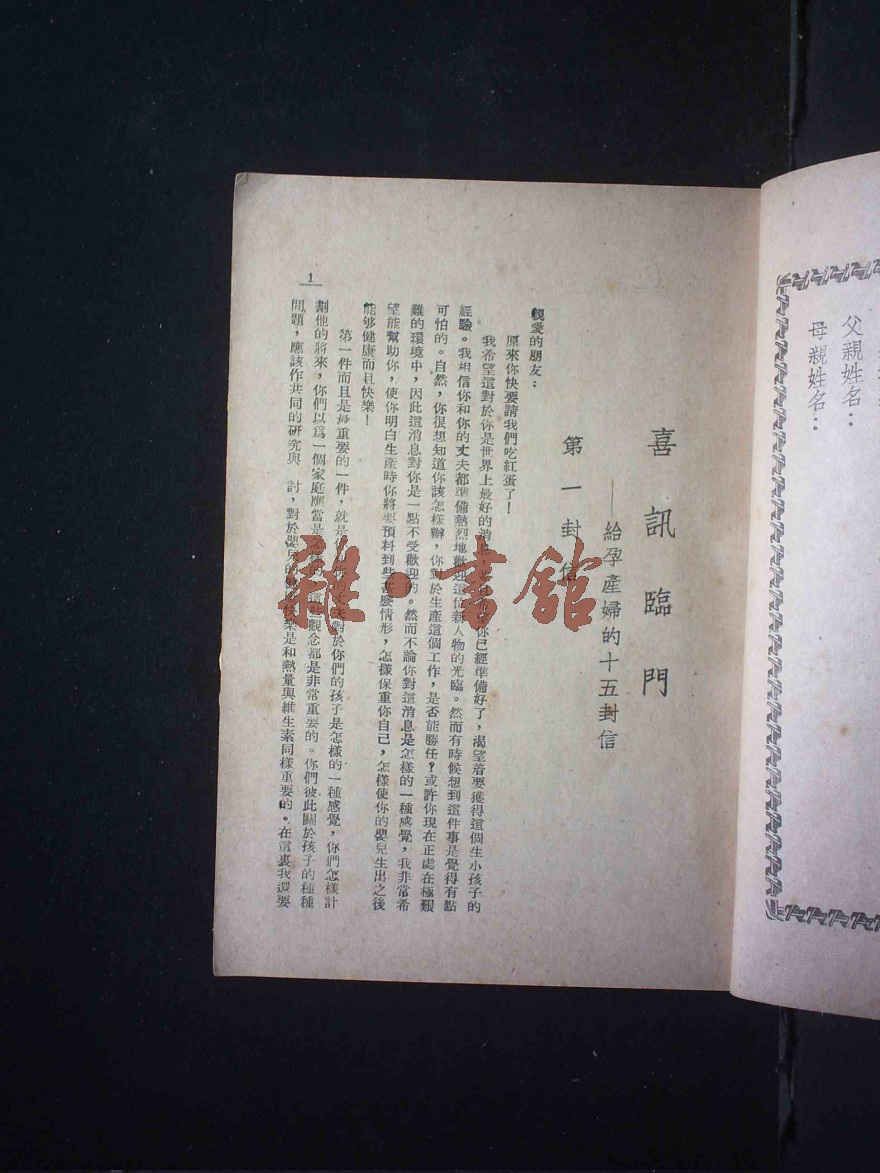 父親姓名：
母親姓名：
喜訊臨門
——給孕產婦的十五封信
第一封信
親愛的朋友：
原來你快要請我們吃紅蛋了！
我希望這對於你是世界上最好的消息，你已經準備好了，渴望着要獲得這個生小孩子的
經驗。我相信你和你的丈夫都準備熱烈地歡迎這位新人物的光臨。然而有時候想到這件事是覺得有點
可怕的。自然，你很想知道你該怎樣辦，你對於生產這個工作，是否能勝任？或許你現在正處在極艱
難的環境中，因此這消息對你是一點不受歡迎的。然而不論你對這消息是怎樣的一種感覺，我非常希
望能幫助你，使你明白生產時你將要預料到些甚麼情形，怎樣保重你自己，怎樣使你的嬰兒生出之後
能够健康而且快樂！
第一件而且是最重要的一件，就是你和你的丈夫對於你們的孩子是怎樣的一種感覺，你們怎樣計
劃他的將來，你們以爲一個家庭應當是怎樣的，這些觀念都是非常重要的。你們彼此關於孩子的種種
問題，應該作共同的研究與 討，對於嬰兒的健康快樂是和熱量與維生素同樣重要的。在這裏我還要
1
雜·書館